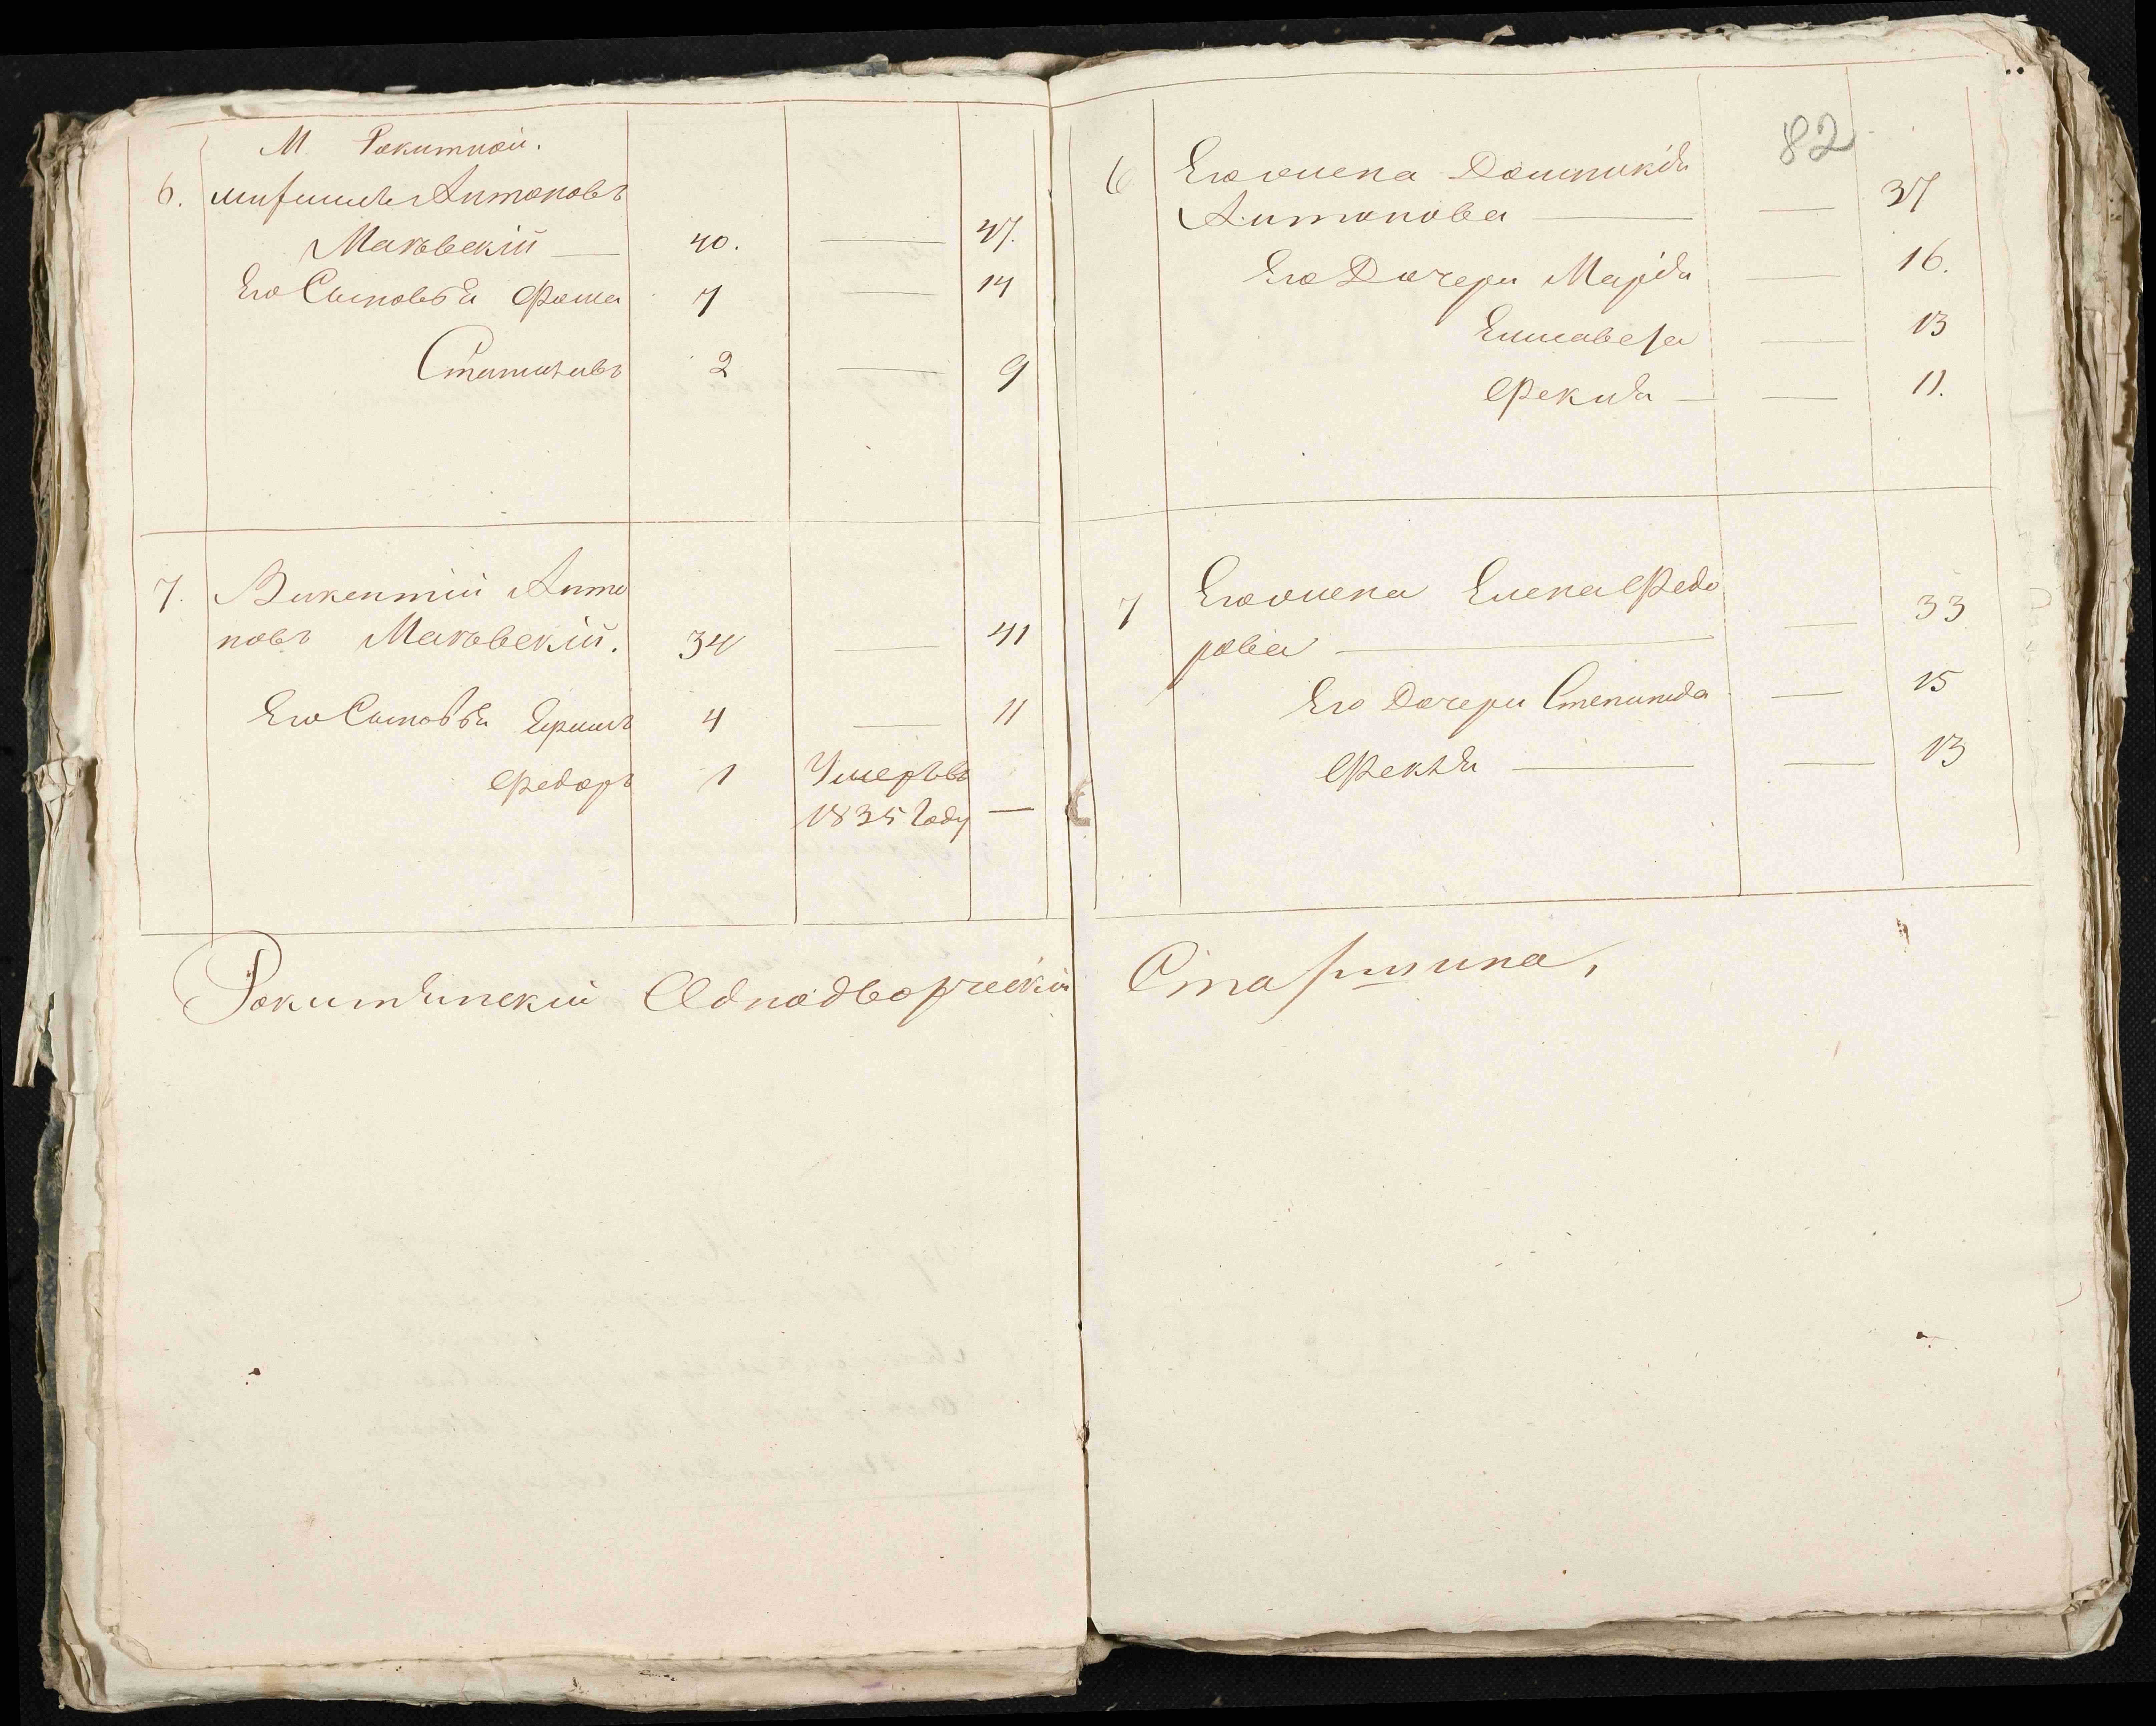 М Рокитной.
6. Антоновъ
Маковскій — 40. — 47.
Его Сыновья Фома 7 — 14
Станиславъ 2 — 9
7. Викентій Анто
новъ Маковскій. 34 — 41
Его Сыновья 4 — 11
Федоръ 1 Умеръ въ
1835 Году —
Рокитянскій Однодворческій Старшина,
82
6 Его жена Доминикія
Антонова — — 37
Его Дочери Марія — 16.
Елисавета — 13
Фекла — — 11.
7 Его жена Елена Федо
рова — — 33
Его Дочери Степанида — 15
Фекла — — 13